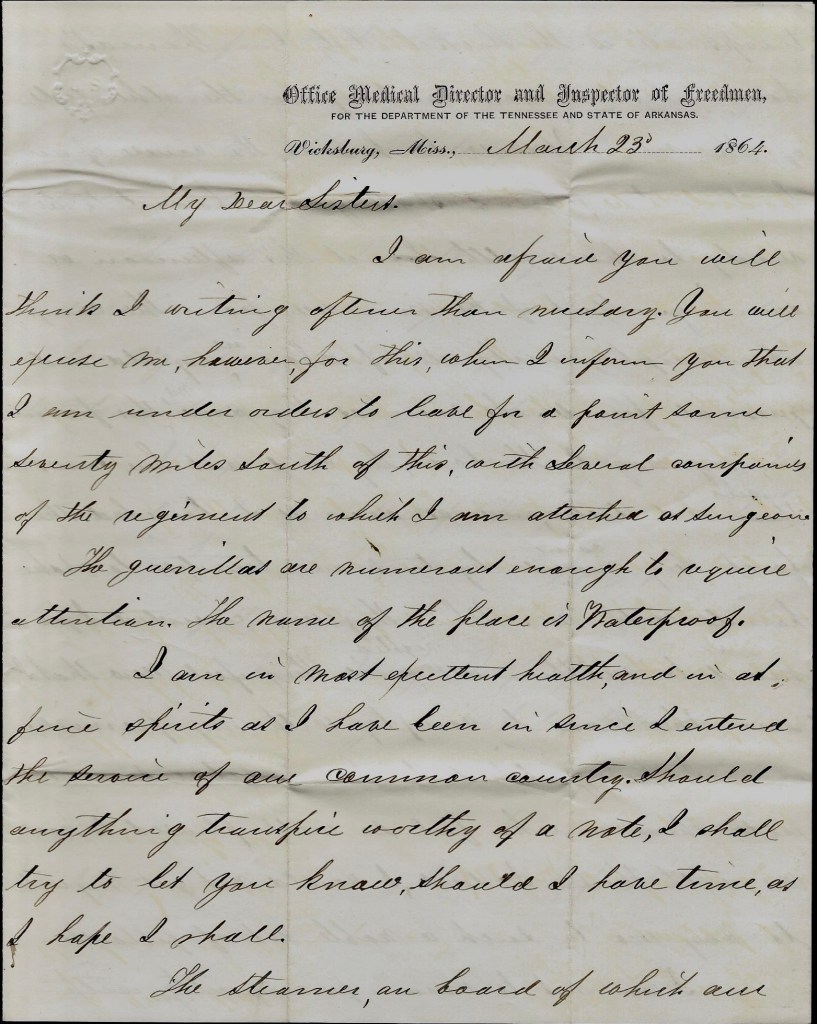 Office Medical Director and Inspector of Freedmen,
FOR THE DEPARTMENT OF THE TENNESSEE AND STATE OF ARKANSAS.
Vicksburg, Miss., March 23d 1864.
My Dear Sisters.
I am afraid you will
think I writing oftener than nessary. You will
excuse me, however, for this, when I inform you that
I am under orders to leave for a point some
seventy miles south of this, with several companies
of the regiment to which I am attached as surgeon
The guerrillas are numerous enough to require
attention. The name of the place is Waterproof.
I am in most excellent health, and in as
fine spirits as I have been in since I entered
the service of our common country. Should
anything transpire worthy of a note, I shall
try to let you know, should I have time, as
I hope I shall.
The steamer, on board of which our